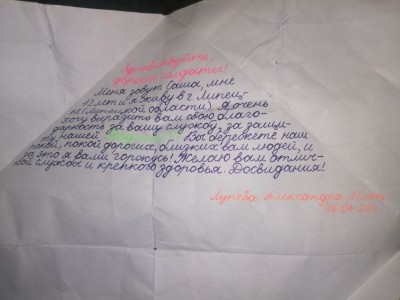 Здравствуйте,
дорогие солдаты!
Меня зовут Саша, мне
12 лет и я живу в г. Липец-
ке (Липецкой области). Я очень
хочу выразить вам свою благо-
дарность за вашу службу, за защи-
ту нашей Вы бережёте наш
покой, покой дорогих, близких вам людей, и
за это я вами горжусь! Желаю вам отлич-
ной службы и крепкого здоровья. Досвидания!
Лунёва Александра